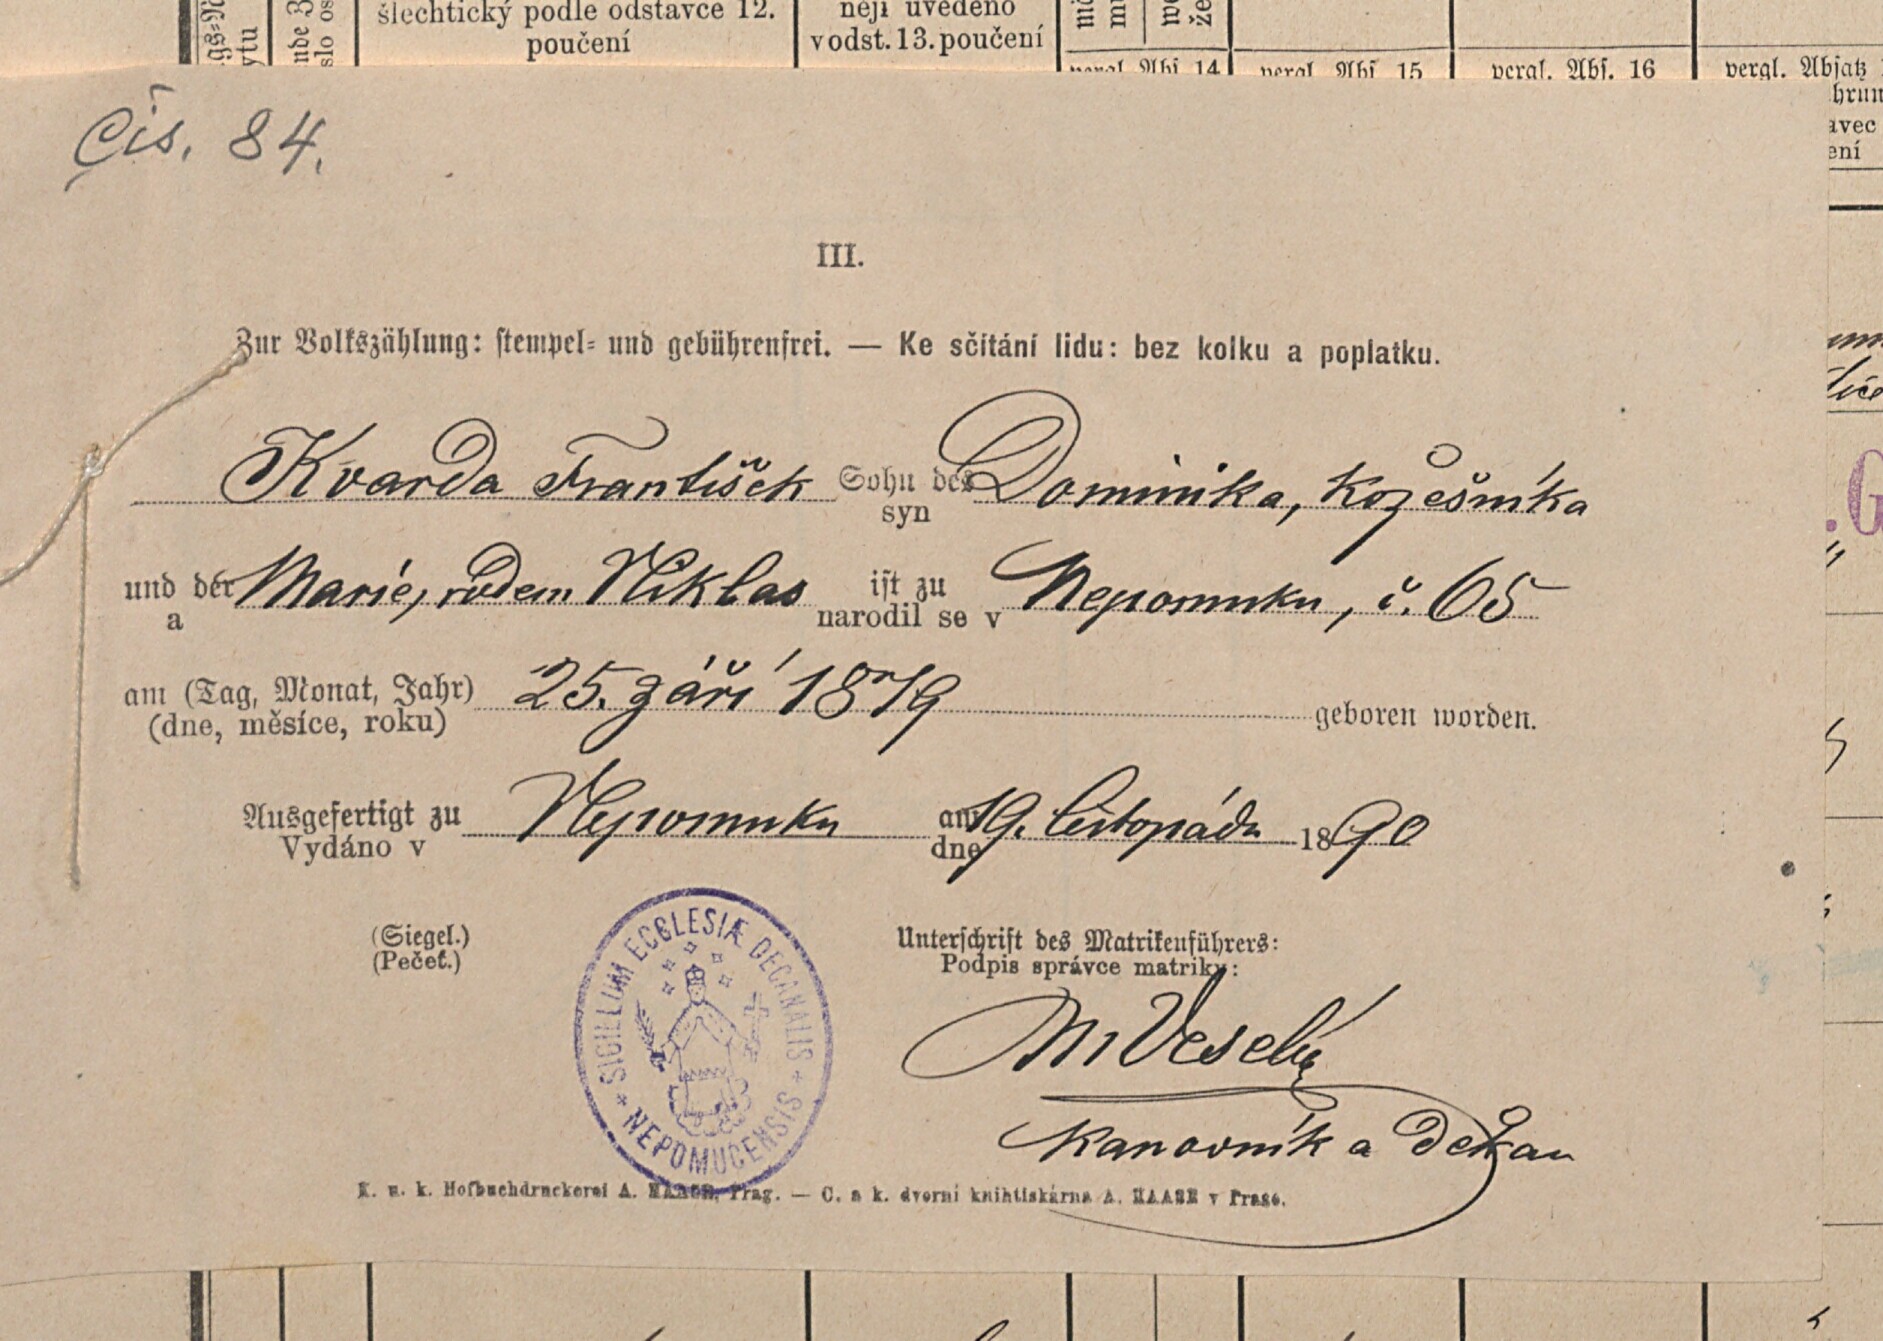 šlechtický podle odstavce 12.
poučení
něji uvedeno
v odst. 13. poučení
vergl. Abs. 14
vergl. Abs. 15
vergl. Abs. 16
vergl. Absatz
Čís. 84.
III.
Zur Volkszählung: stempel- und gebührenfrei. — Ke sčítání lidu: bez kolku a poplatku.
Kvarda František Sohn des Dominika, kožešníka
syn
und der Marie, rodem Niklas ist zu Nepomuku, č. 65
a narodil se v
am (Tag, Monat, Jahr) 25. září 1879 geboren worden.
(dne, měsíce, roku)
Ausgefertigt zu Nepomuku am 19. listopadu 1890
Vydáno v dne
(Siegel.)
(Pečeť.)
SIGILLUM ECCLESIÆ DECANALIS
NEPOMUCENSIS
Unterschrift des Matrikenführers:
Podpis správce matriky:
M Veselý
Kanovník a děkan
K. u. k. Hofbuchdruckerei A. HAASE, Prag. — C. a k. dvorní knihtiskárna A. HAASE v Praze.